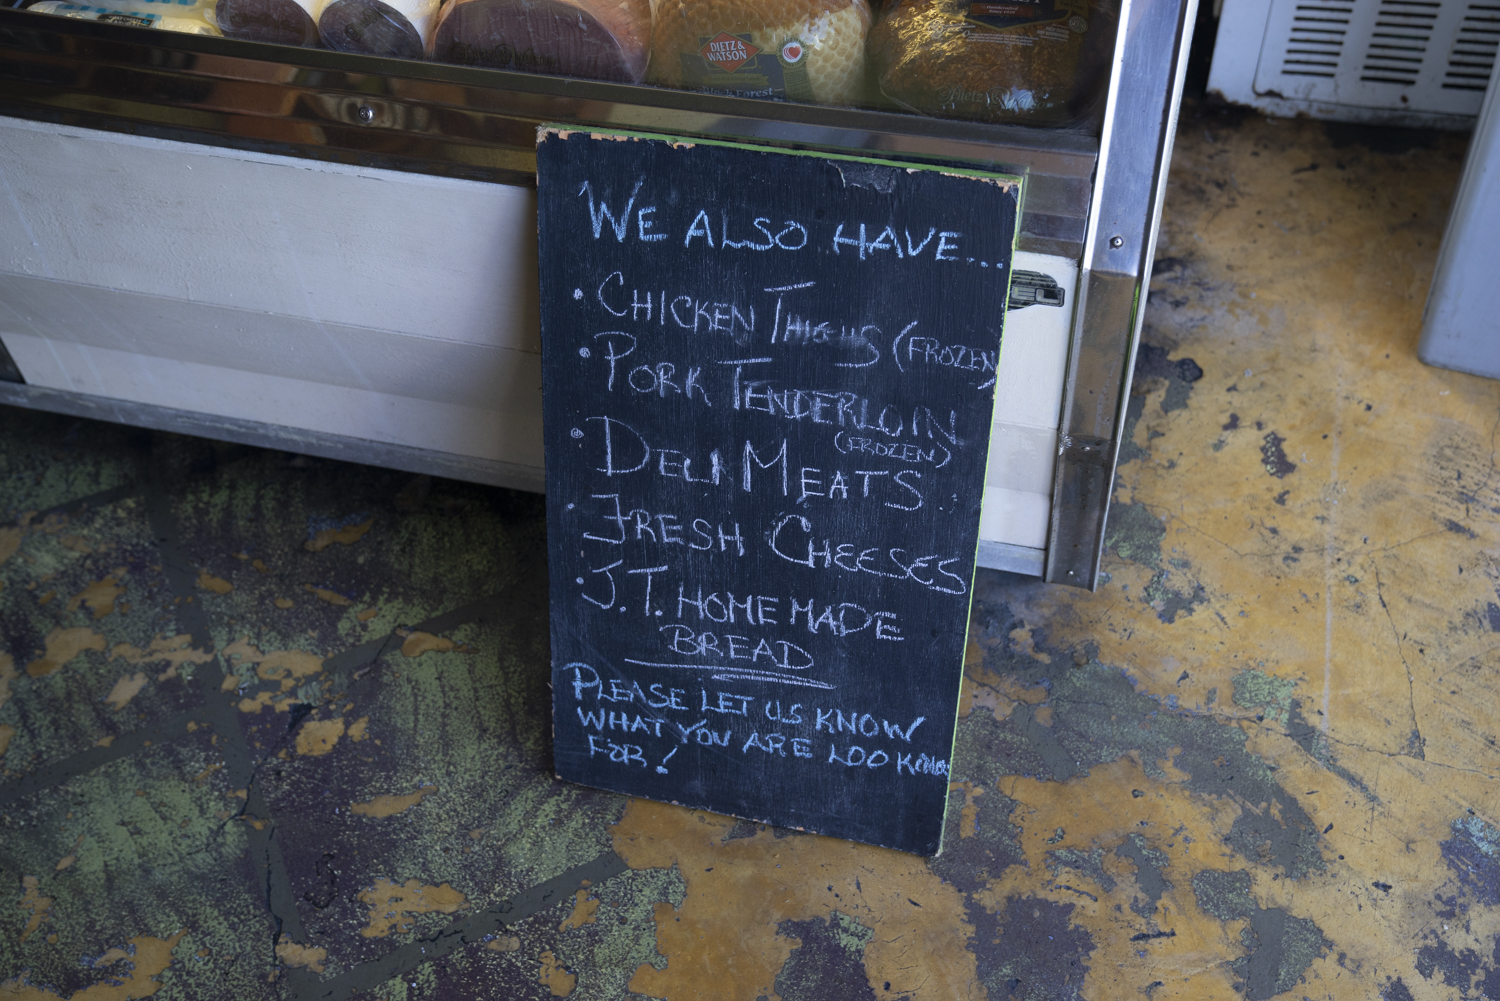 DIETZ &
WATSON
Black Forest
WE ALSO HAVE...
• CHICKEN THIGHS (FROZEN)
• PORK TENDERLOIN
(FROZEN)
• DELI MEATS
• FRESH CHEESES
• J.T. HOMEMADE
BREAD
PLEASE LET US KNOW
WHAT YOU ARE LOOKING
FOR!